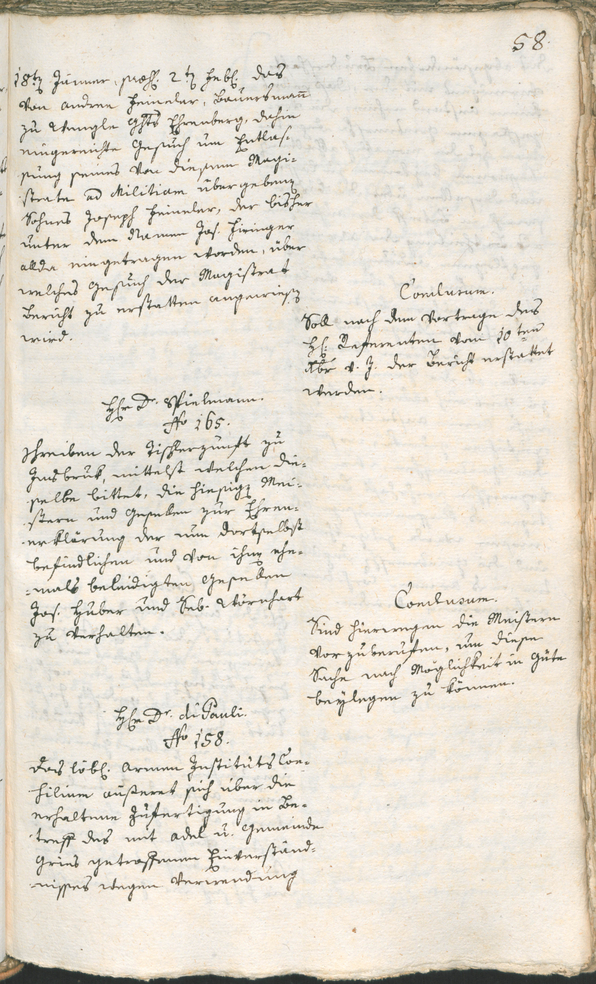 58.
18ten Jänner, præs. 2ten Febr. das
von Andree Heinder, Bauersmann
zu Wengle Ghts Ehrenberg, dahin
eingereichte Gesuch um Entlas-
sung seines von diesem Magi-
strate ad Militiam übergebenen
Sohnes Joseph Heinder, der bisher
unter dem Namen Jos. Hieninger
allda eingetragen worden, über
welches Gesuch der Magistrat
Bericht zu erstatten angewiesen
wird.
Conclusum.
Soll nach dem Vortrage des
H. Referenten vom 10ten
Xbr v. J. der Bericht erstattet
werden.
Hhr Dr. Spielmann.
No 165.
Schreiben der Tischlerzunft zu
Insbruk, mittelst welchen die-
selbe bittet, die hiesigen Mei-
stern und Gesellen zur Ehren-
erklärung der nun dortselbst
befindlichen und von ihnen ehe-
mals beleidigten Gesellen
Jos. Huber und Seb. Wörnhart
zu verhalten.
Conclusum.
Sind hierwegen die Meistern
vorzuberuffen, um diese
Sache nach Möglichkeit in Güte
beylegen zu können.
Hhr Dr. di Pauli.
No 158.
Das löbl. Armen Instituts Con-
silium äußeret sich über die
erhaltene Zufertigung in Be-
treff des mit Adel u. Gemeinde
Gries getroffenen Einverständ-
nisses wegen Verwendung